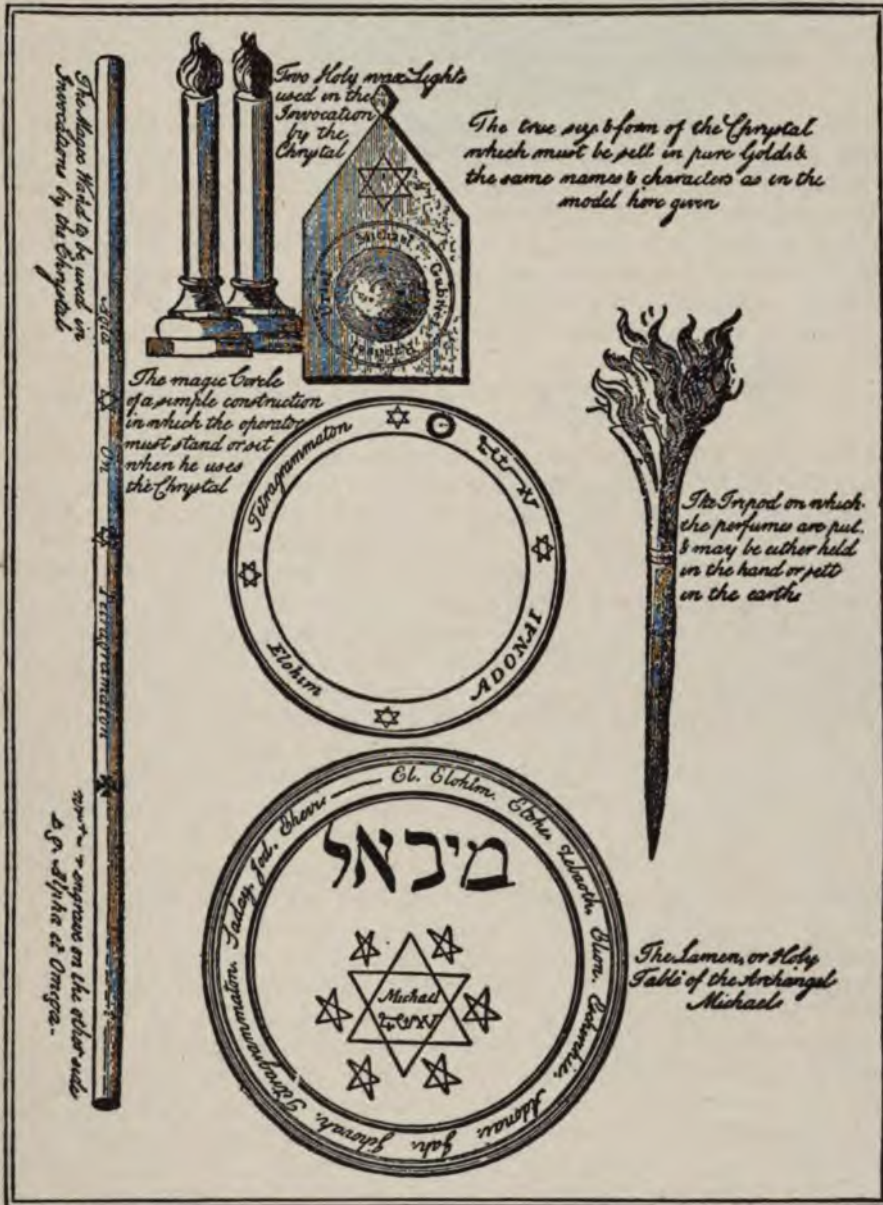 The Magic Wand to be used in
Invocations by the Chrystal
Agla
On
Tetragrammaton
engrave on the other side
Alpha et Omega
Two Holy wax Lights
used in the
Invocation
by the
Chrystal
The true size & form of the Chrystal
which must be sett in pure Gold &
the same names & characters as in the
model here given
Michael
Gabriel
Uriel
Raphael
The magic Circle
of a simple construction
in which the operator
must stand or sit
when he uses
the Chrystal
Tetragrammaton
ADONAI
Elohim
The Tripod on which
the perfumes are put,
& may be either held
in the hand or sett
in the earth
El. Elohim. Elohe. Zebaoth. Elion. Adonai. Jah. Jehovah. Tetragrammaton. Saday. Jod.
מיכאל
Michael
The Lamen, or Holy
Table of the Archangel
Michael